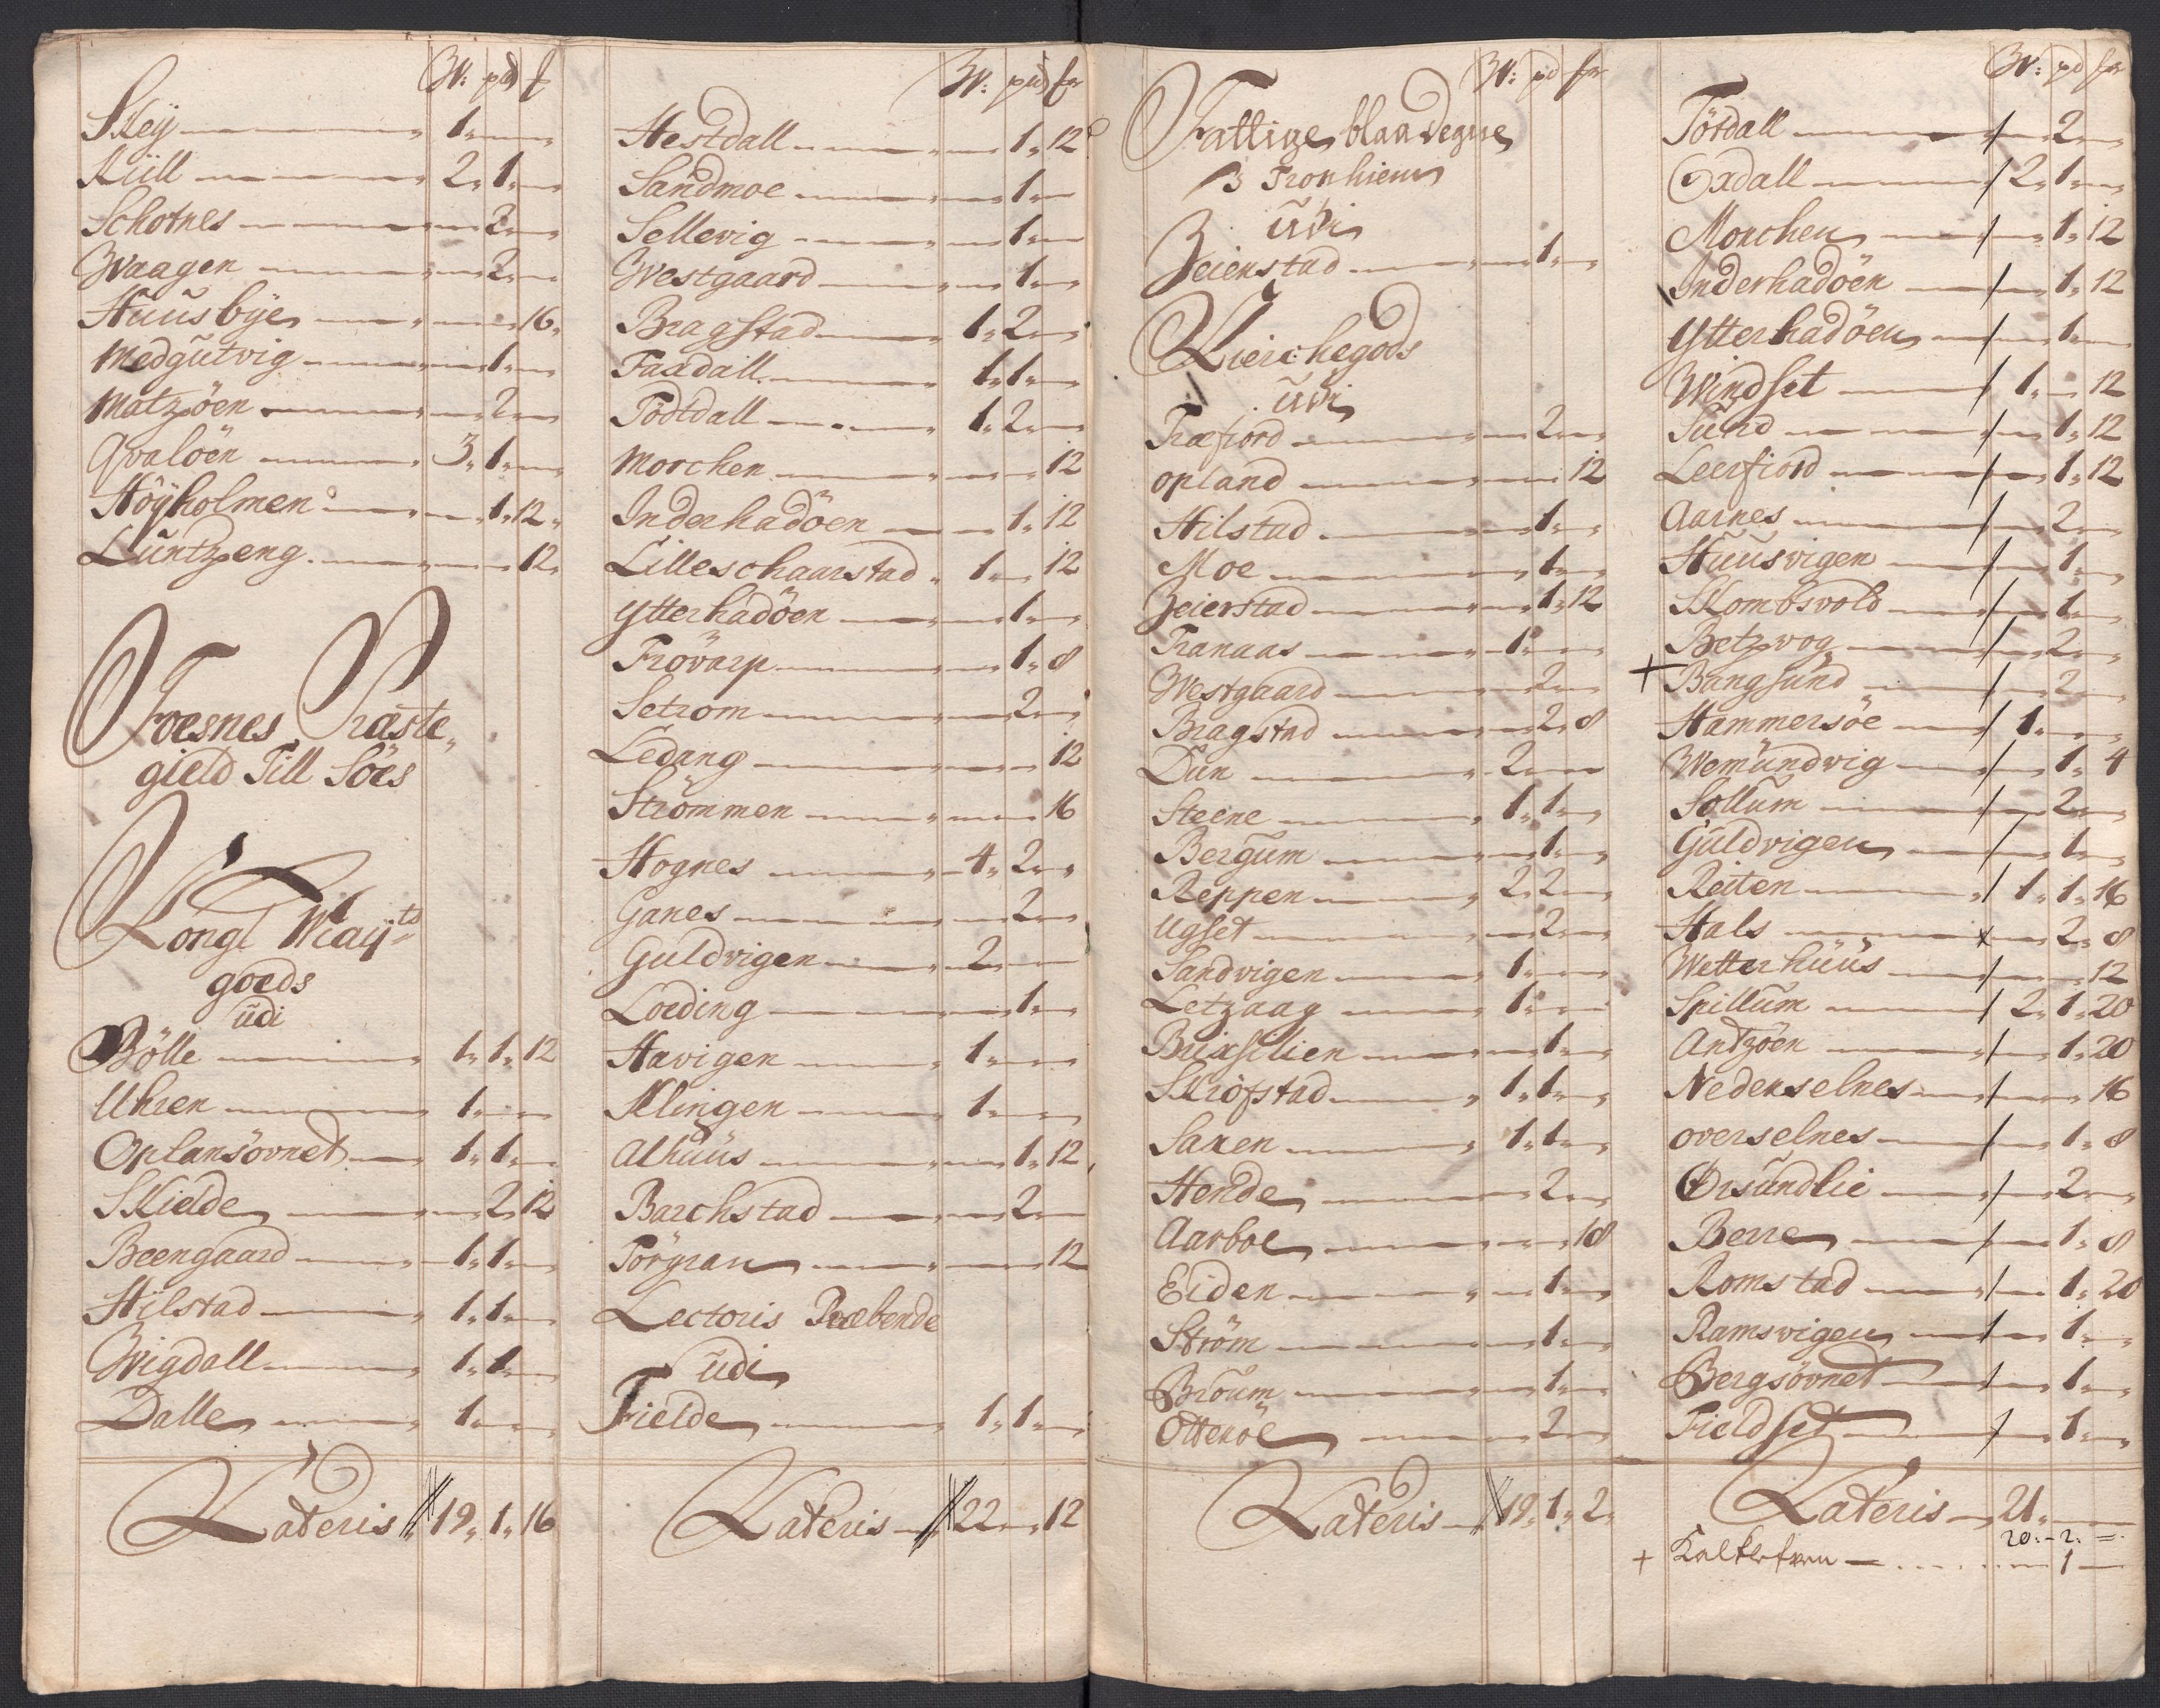 W: pd f
Skeÿ 1
Kiill 2 1
Schotnes 2
Waagen 2
Huusbÿe 16
Medgutvig 1
Matzöen 2
Qvalöen 3 1
Höÿholmen 1 12
Luntzeng 12
Foesnes Præste-
gield Till Söes
Kongl Maÿts
goeds
udi
Bölle 1 1 12
Uhren 1
Oplansövnet 1 1
Skielde 2 12
Beengaard 1 1
Hilstad 1 1
Wigdall 1 1
Dalle 1
Lateris 19 1 16
W: pd fr
Hestdall 1 12
Sandmoe 1
Sellevig 1
Westgaard 1
Bragstad 1 2
Faxdall 1 1
Födtdall 1 2
Morchen 12
Inderhadöen 1 12
Lilleschaarstad 1 12
Ytterhadöen 1
Frövarp 1 8
Setrom 2
Ledang 12
Strömmen 16
Hognes 4 2
Ganes 2
Guldvigen 2
Loeding 1
Havigen 1
Klingen 1
Alhuus 1 12
Barchstad 2
Törgran 12
Lectoris Præbende
udi
Fielde 1 1
Lateris 22 12
W: pd fr
Fattige blandegne
i Tronhiem
udi
Zeienstad 1
Kierchegods
udi
Træfiord 2
Opland 12
Hilstad 1
Moe 1
Zeierstad 1 12
Tranaas 1
Westgaard 2
Bragstad 2 8
Dun 2
Steene 1 1
Bergum 1
Reppen 2 2
Ugset 2
Sandvigen 1
Letzaag 1
Brixsilien 1
Skröfstad 1 1
Saxen 1 1
Hende 2
Aarboe 18
Eiden 1
Ström 1
Bröum 1
Otteröe 2
Lateris 19 1 2
W: pd fr
Tördall 2
Oxdall 2 1
Morchen 1 12
Inderhadöen 1 12
Ytterhadöen 1
Windset 1 12
Sund 1 12
Leerfiord 1 12
Aarnes 2
Huusvigen 1
Klombsvold 1
Betzvog 2
+ Bangsund 2
Hammersöe 1
Wemundvig 1 4
Sollum 2
Guldvigen 1
Reiten 1 1 16
Hals 2 8
Wetterhuus 12
Spillum 2 1 20
Antzöen 1 20
Nederselnes 16
overselnes 1 8
Örsundlie 2
Berre 1 8
Romstad 1 20
Ramsvigen 1
Bergsövnet 1
Fieldset 1
Lateris 21
20 - 2 =
+ 1